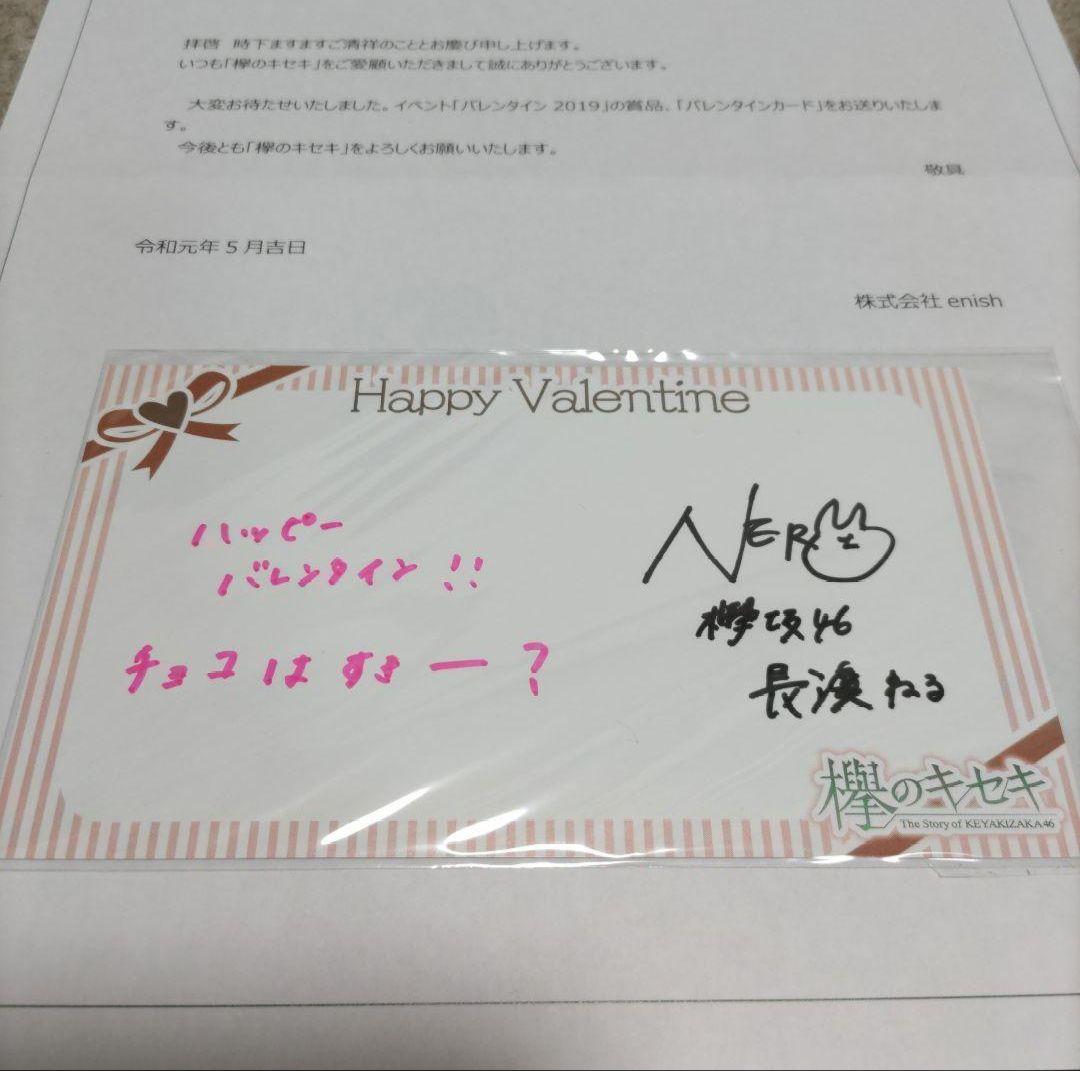 拝啓　時下ますますご清祥のこととお慶び申し上げます。
いつも「欅のキセキ」をご愛顧いただきまして誠にありがとうございます。
大変お待たせいたしました。イベント「バレンタイン 2019」の賞品、「バレンタインカード」をお送りいたしま
す。
今後とも「欅のキセキ」をよろしくお願いいたします。
敬具
令和元年 5 月吉日
株式会社 enish
Happy Valentine
ハッピー
バレンタイン !!
チョコはすきー?
NERU
欅坂46
長濱ねる
欅のキセキ
The Story of KEYAKIZAKA46